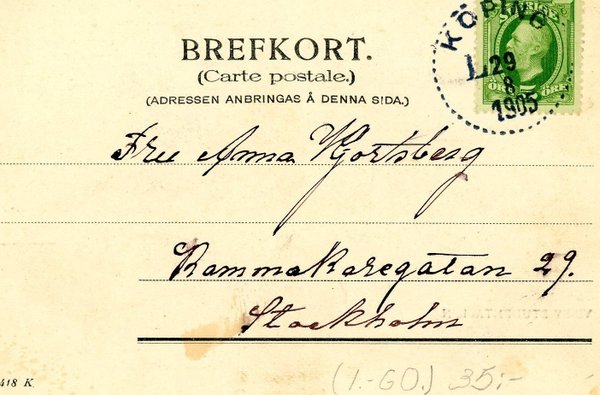 KÖPING
L 29
8
1905
SVERIGE
5 ÖRE
BREFKORT.
(Carte postale.)
(ADRESSEN ANBRINGAS Å DENNA SIDA.)
Fru Anna Hjortsberg
Kammakaregatan 29.
Stockholm
418 K.
(1.-GO.) 35:-